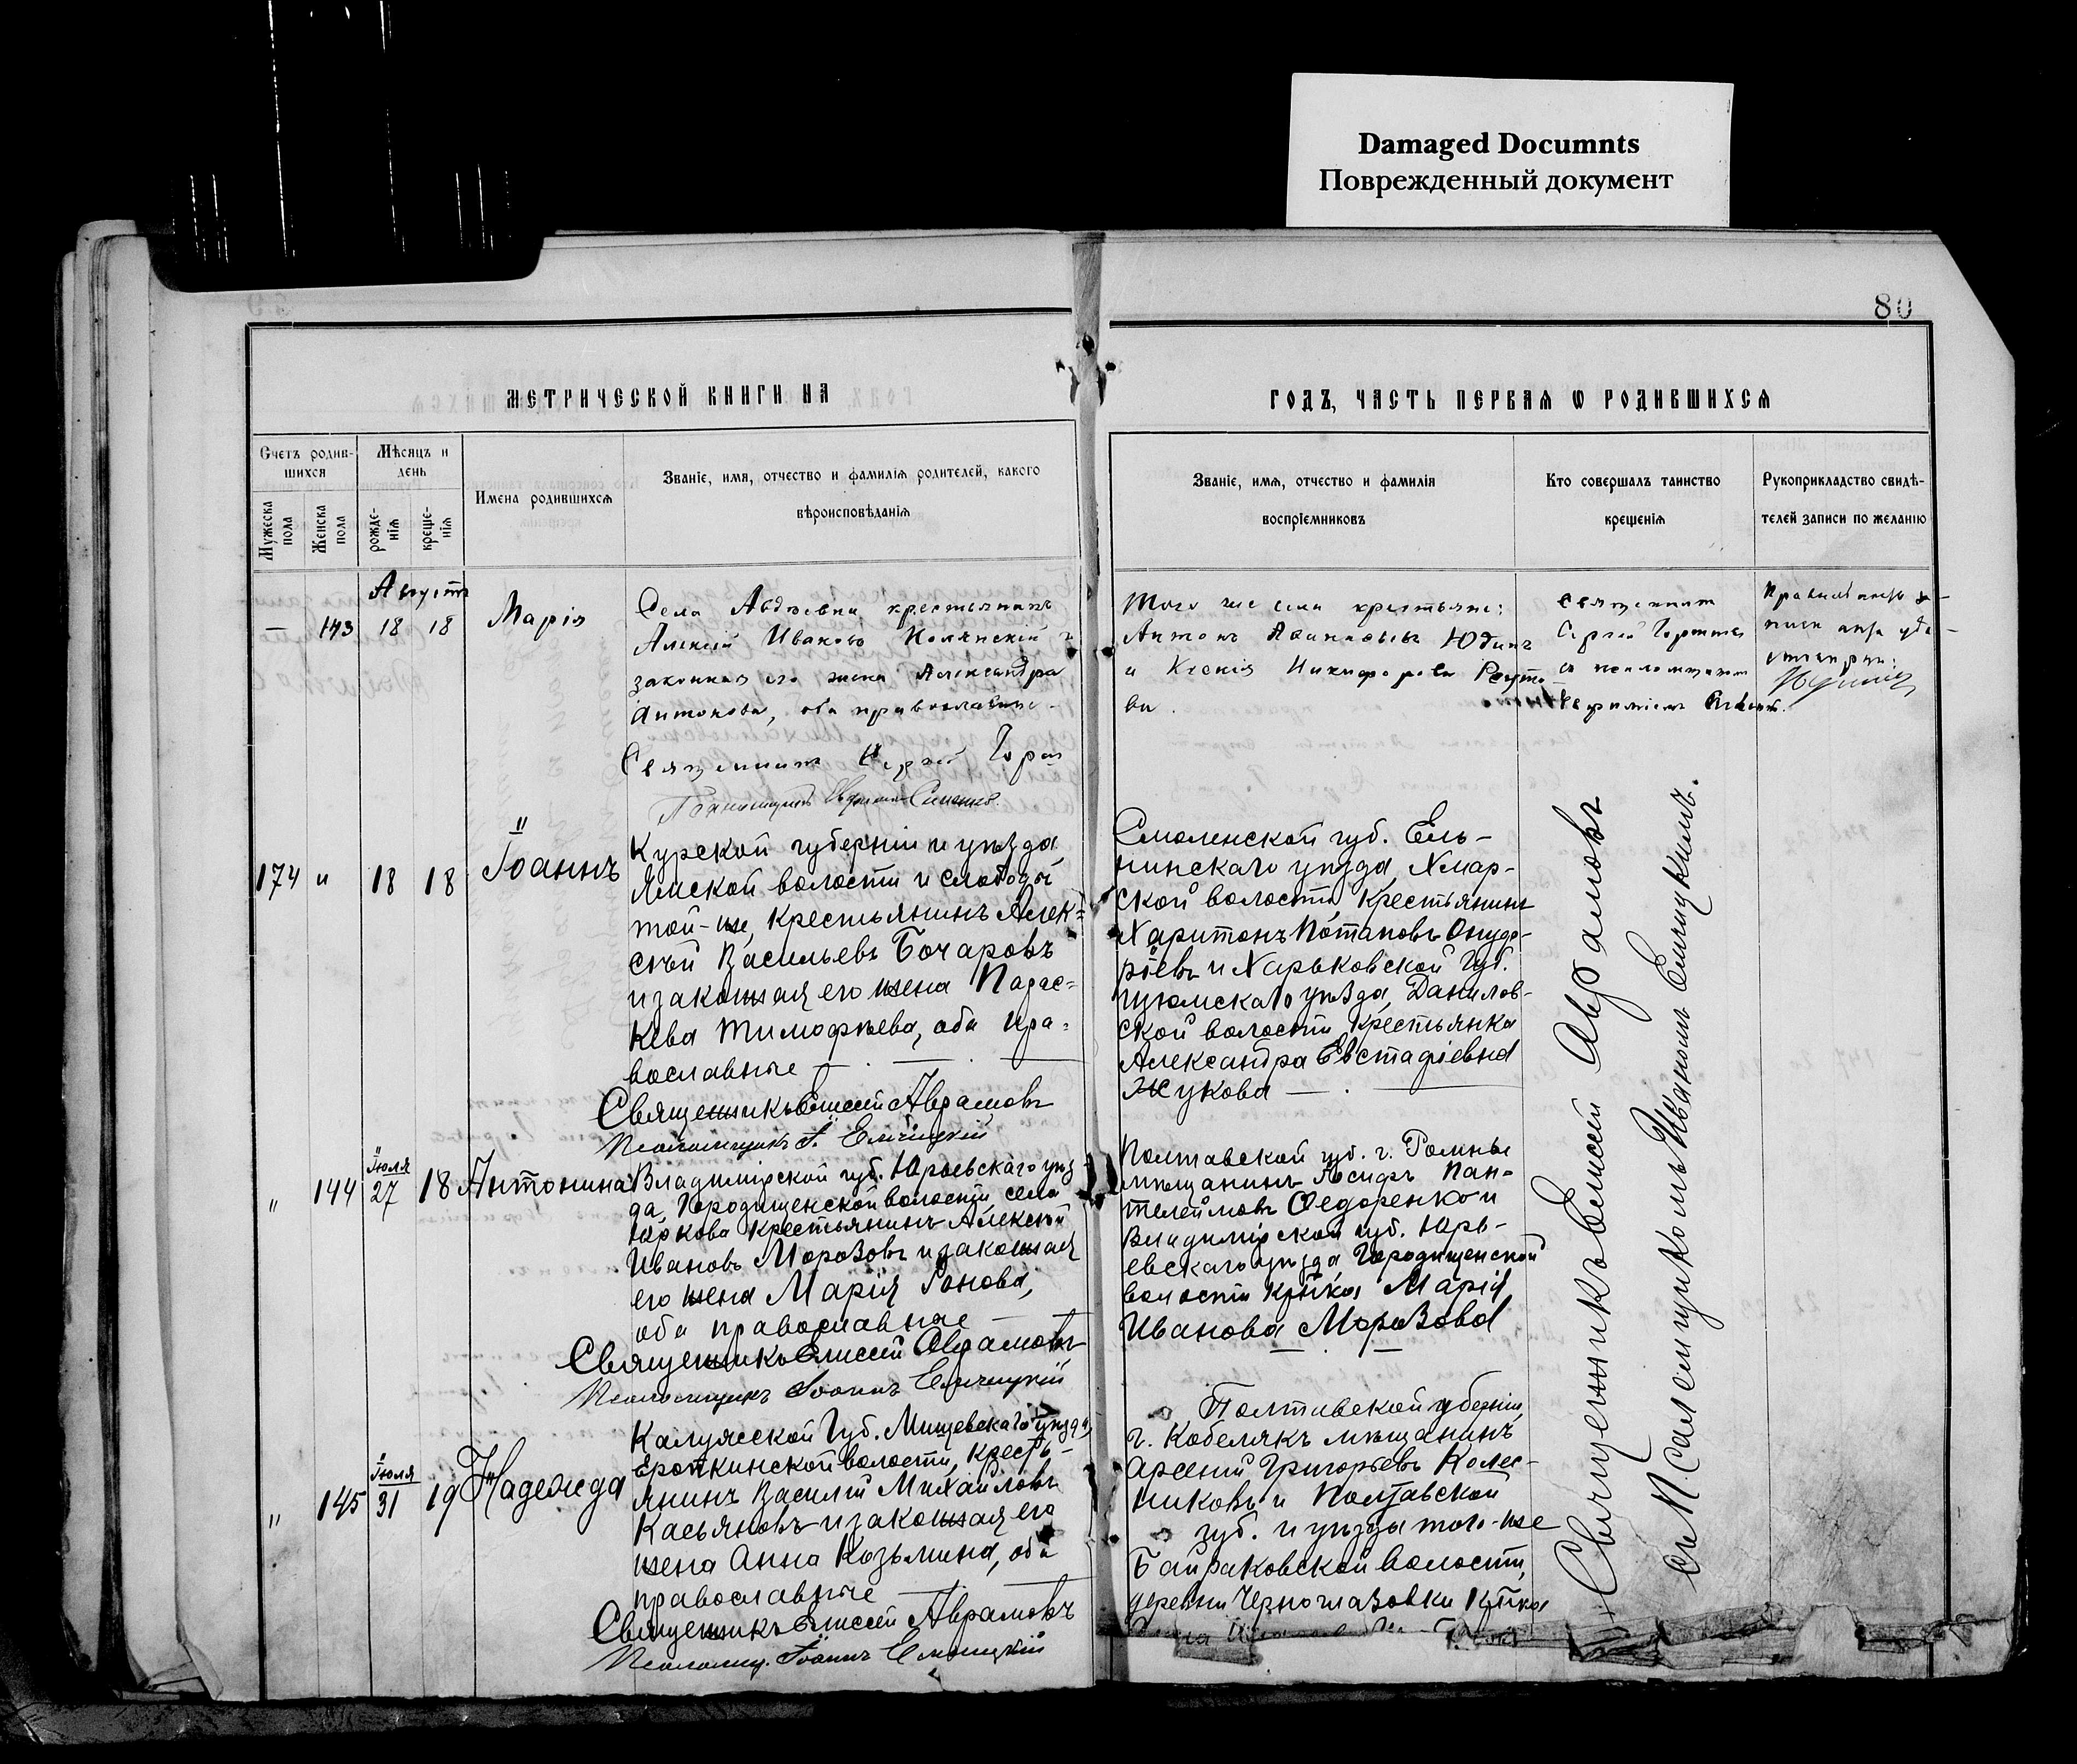 Damaged Documnts
Поврежденный документ
80
МЕТРИЧЕСКОЙ КНИГИ НА
ГОДЪ, ЧАСТЬ ПЕРВАЯ Ѡ РОДИВШИХСЯ
Счетъ родив-
шихся
Мѣсяцъ и
день
Мужеска
пола
Женска
пола
рожде-
нія
креще-
нія
Имена родившихся
Званіе, имя, отчество и фамилія родителей, какого
вѣроисповѣданія
Званіе, имя, отчество и фамилія
воспріемниковъ
Кто совершалъ таинство
крещенія
Рукоприкладство свидѣ-
телей записи по желанію
Августъ
— 143 18 18
Марія
Села крестьянинъ
Алексій Ивановъ и
законная его жена Александра
Антонова, оба православные.
Священникъ
Того же села крестьяне:
Антонъ Юдинъ
и Ксенія Никифорова
ва.
Священникъ
Сергій
съ псаломщикомъ
174 " 18 18
Іоаннъ
Курской губерніи и уѣзда
Ямской волости и слободы
той-же, крестьянинъ Алек=
сѣй Васильевъ Бочаровъ
и законная его жена Парас=
кева Тимофѣева, оба пра=
вославные — . — —
Священникъ Елисей Аврамовъ
Псаломщикъ І. Елчицкій
Смоленской губ. Ель-
нинскаго уѣзда, Хмар-
ской волости, крестьянинъ
Харитонъ Потаповъ Онуф-
ріевъ и Харьковской губ.
Изюмскаго уѣзда, Данилов-
ской волости, крестьянка
Александра Евстафіевна
Жукова — . —
" 144
Іюля
27 18
Антонина
Владимірской губ. Юрьевскаго уѣз
да, Городищенской волости, села
крестьянинъ Алексѣй
Ивановъ Морозовъ и законная
его жена Марія Іонова,
оба православные —
Священникъ Елисей Аврамовъ
Псаломщикъ Іоаннъ Елчицкій
Полтавской губ. г. Ромны
мѣщанинъ Іосифъ Пан-
телеймовъ Федоренко и
Владимірской губ. Юрь-
евскаго уѣзда Городищенской
волости кр-ка Марія
Иванова Морозова
— —
" 145
Іюля
31 19
Надежда
Калужской Губ. Мещевскаго уѣзда,
Еропкинской волости, кресть-
янинъ Василій Михайловъ
Касьяновъ и законная его
жена Анна Козьмина, оба
православные —
Священникъ Елисей Аврамовъ
Псаломщ. Іоаннъ Елчицкій
Полтавской губерніи,
г. Кобелякъ мѣщанинъ
Арсеній Григорьевъ Колес-
никовъ и Полтавской
губ. и уѣзда того-же
Байраковской волости,
деревни Черноглазовки кр-ка
Священникъ Елисей Аврамовъ
съ Псаломщикомъ Иваномъ Елчицкимъ.